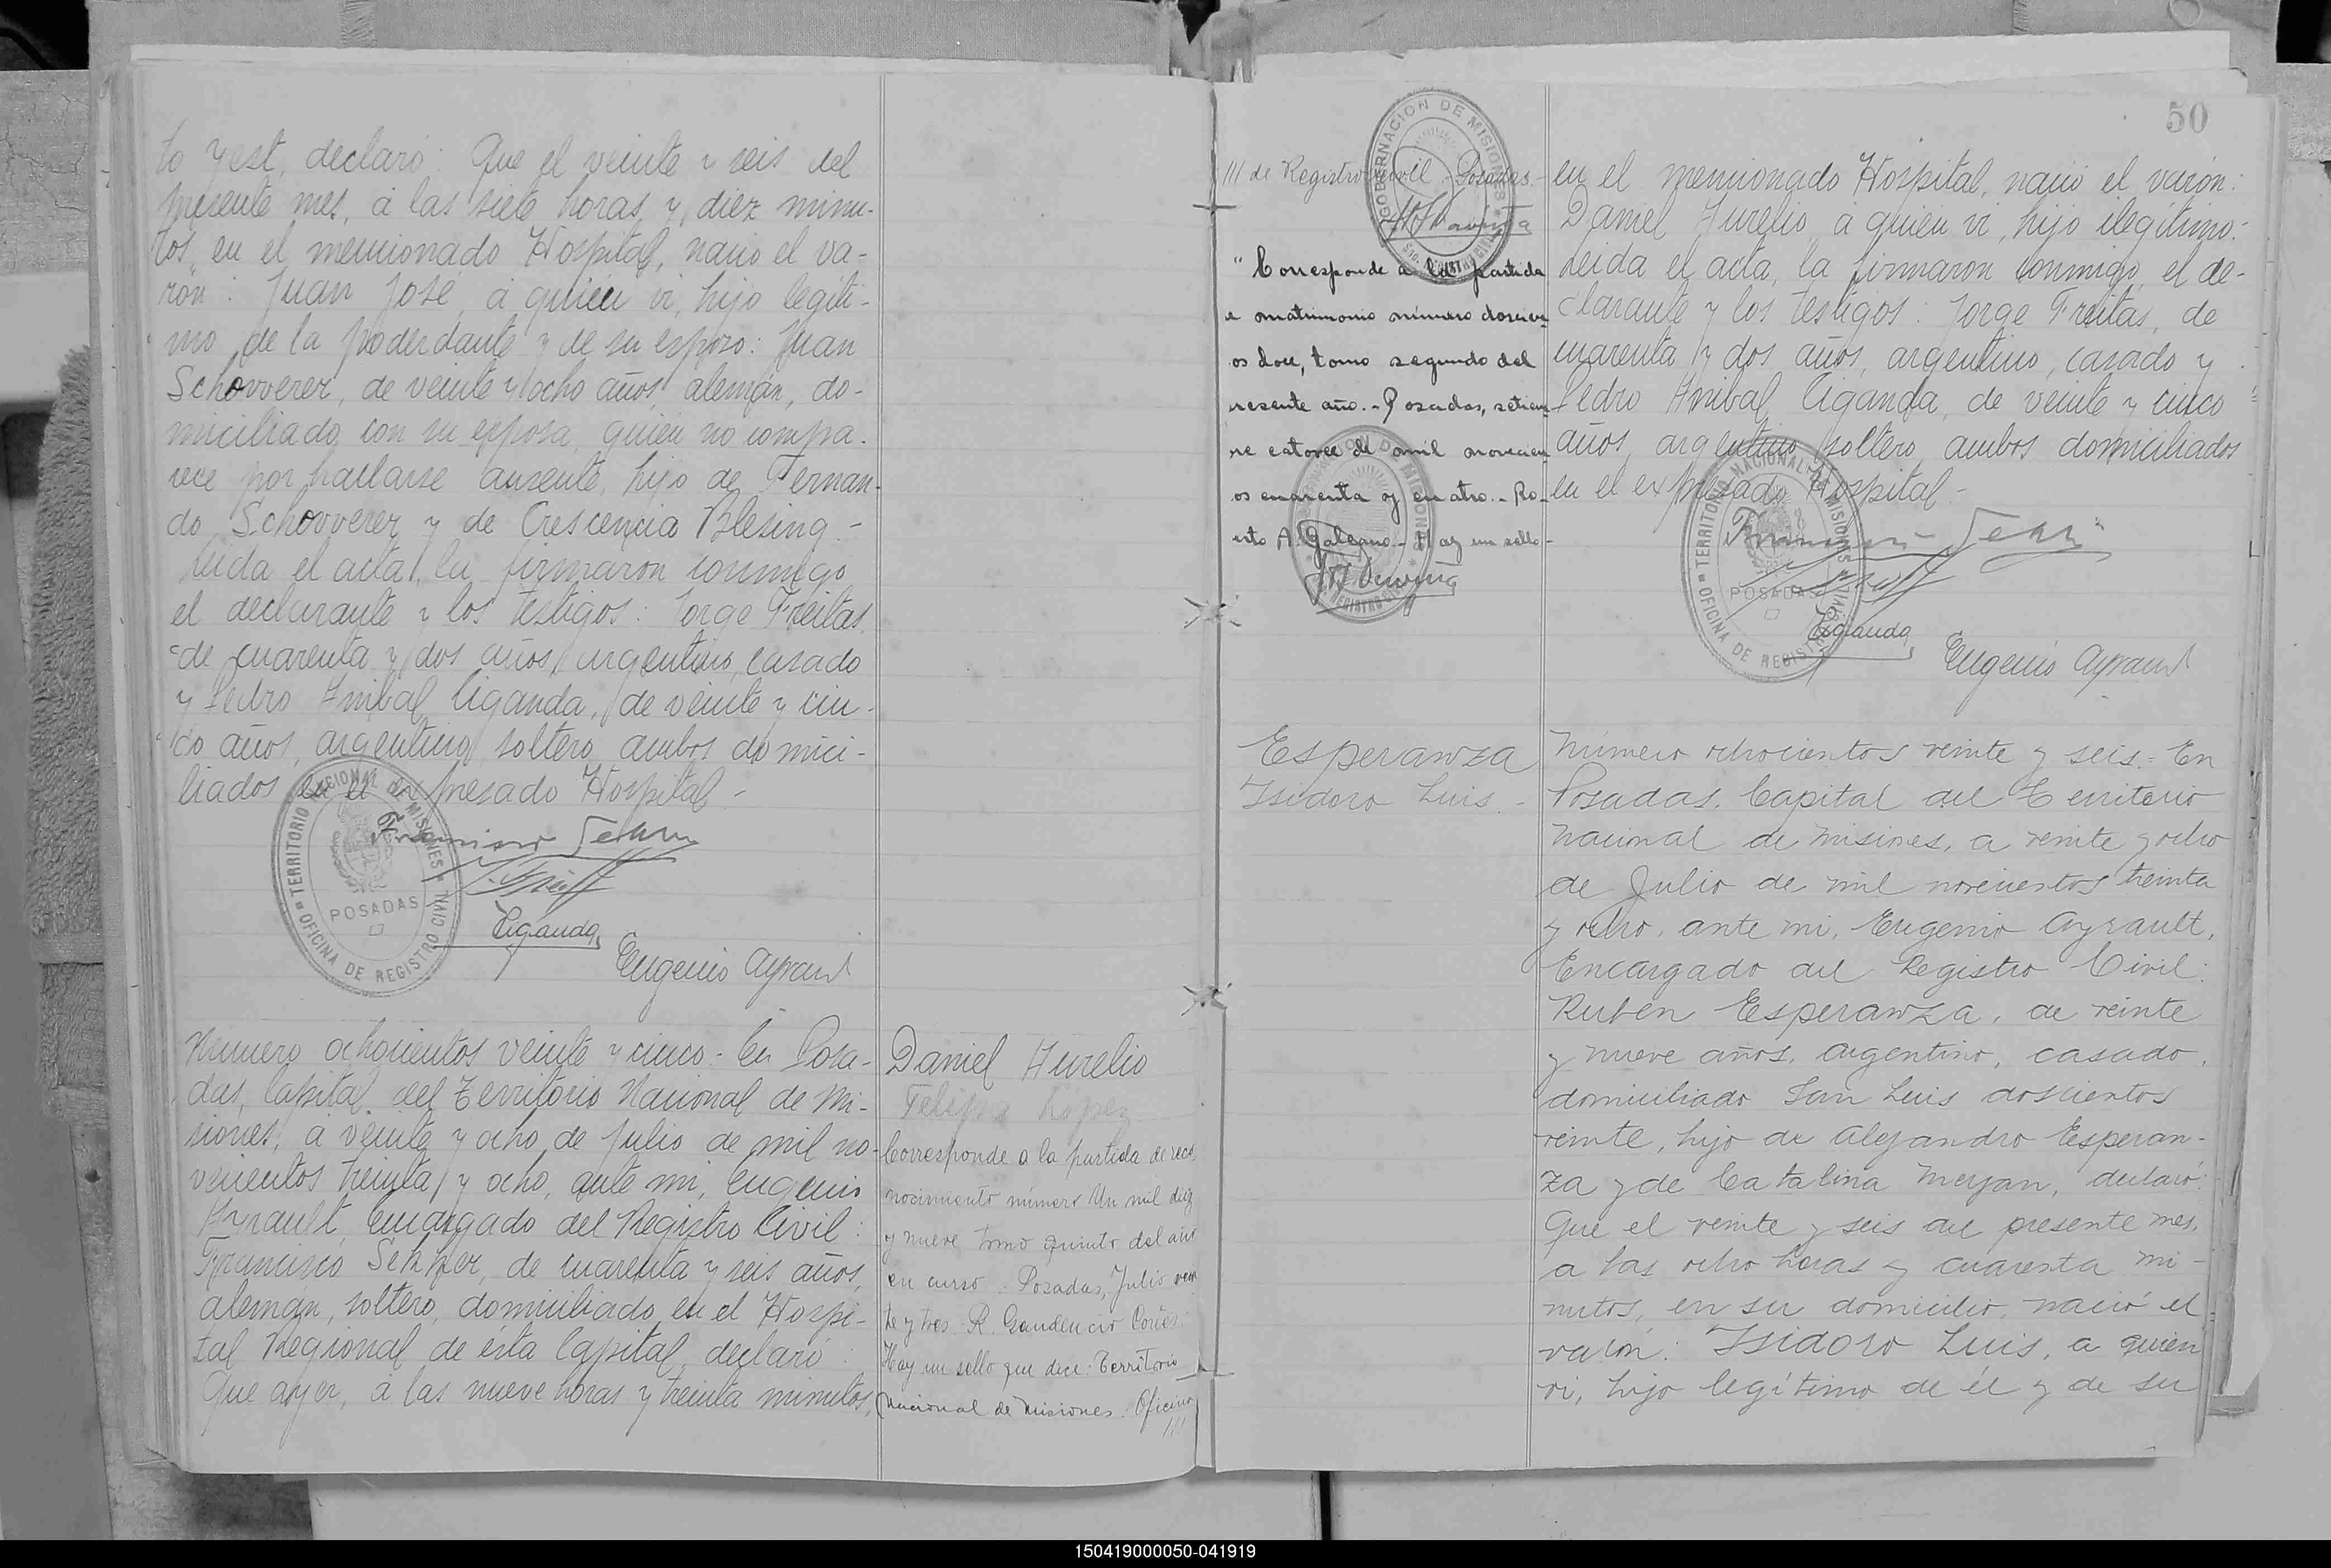 to y est, declaró: Que el veinte y seis del
presente mes, á las siete horas y diez minu-
tos, en el mencionado Hospital, nació el va-
rón: Juan José, á quien vi, hijo legíti-
mo de la poderdante y de su esposo: Juan
Schovverer, de veinte y ocho años, alemán, do-
miciliado con su esposa, quien no compa-
rece por hallarse ausente, hijo de Fernan-
do Schovverer y de Crescencia Blesing.-
Leida el acta, la firmaron conmigo
el declarante y los testigos: Jorge Freitas,
de cuarenta y dos años, argentino, casado
y Pedro Anibal Ciganda, de veinte y cin-
co años, argentino, soltero, ambos domici-
liados en el expresado Hospital.-
TERRITORIO NACIONAL DE MISIONES
POSADAS
OFICINA DE REGISTRO CIVIL
Ciganda
Eugenio Ayrault
Número ochocientos veinte y cinco.- En Posa-
das, Capital del Territorio Nacional de Mi-
siones, á veinte y ocho de Julio de mil no-
vecientos treinta y ocho, ante mi, Eugenio
Ayrault, Encargado del Registro Civil:
Francisco , de cuarenta y seis años,
alemán, soltero, domiciliado en el Hospi-
tal Regional de esta Capital, declaró:
Que ayer, á las nueve horas y treinta minutos,
Daniel Aurelio
Felipa Lopez
Corresponde a la partida de reco-
nocimiento número Un mil diez
y nueve tomo quinto del año
en curso.- Posadas, Julio vein
te y tres.- R. Gaudencio Cortés
Hay un sello que dice: Territorio
Nacional de Misiones. Oficina
///
50
/// de Registro Civil - Posadas.-
GOBERNACION DE MISIONES
"Corresponde a la partida
e matrimonio número doscien
os doce, tomo segundo del
resente año.- Posadas, setiem
re catorce de mil novecien
os cuarenta y cuatro.- Ro-
erto A. Galeano.- Hay un sello-
en el mencionado Hospital, nació el varón:
Daniel Aurelio, á quien vi, hijo ilegítimo.-
Leida el acta, la firmaron conmigo, el de-
clarante y los testigos: Jorge Freitas, de
cuarenta y dos años, argentino, casado y
Pedro Anibal Ciganda, de veinte y cinco
años, argentino, soltero, ambos domiciliados
en el expresado Hospital.-
TERRITORIO NACIONAL DE MISIONES
POSADAS
OFICINA DE REGISTRO CIVIL
Ciganda
Eugenio Ayrault
Esperanza
Isidoro Luis.-
Número ochocientos veinte y seis.- En
Posadas, Capital del Territorio
Nacional de Misiones, a veinte y ocho
de Julio de mil novecientos treinta
y ocho, ante mi, Eugenio Ayrault,
Encargado del Registro Civil:
Ruben Esperanza, de veinte
y nueve años, argentino, casado,
domiciliado San Luis doscientos
veinte, hijo de Alejandro Esperan-
za y de Catalina Merjan, declaró:
Que el veinte y seis del presente mes,
a las ocho horas y cuarenta mi-
nutos, en su domicilio, nació el
varón: Isidoro Luis, a quien
vi, hijo legítimo de él y de su
150419000050-041919